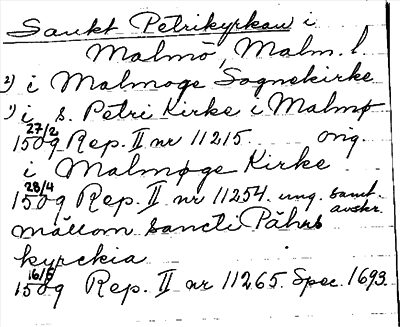 Sankt Petrikyrkan i
Malmö, Malm. l.
2) i Malmoge Sognekirke
1) i S. Petri Kirke i Malmø
27/2
1509 Rep. II nr 11215. orig.
i Malmøge Kirke
28/4
1509 Rep. II nr 11254. ung. samt. avskr.
mällom Sancti Pähr
kyrckia
16/5
1509 Rep. II nr 11265. Spec. 1693.